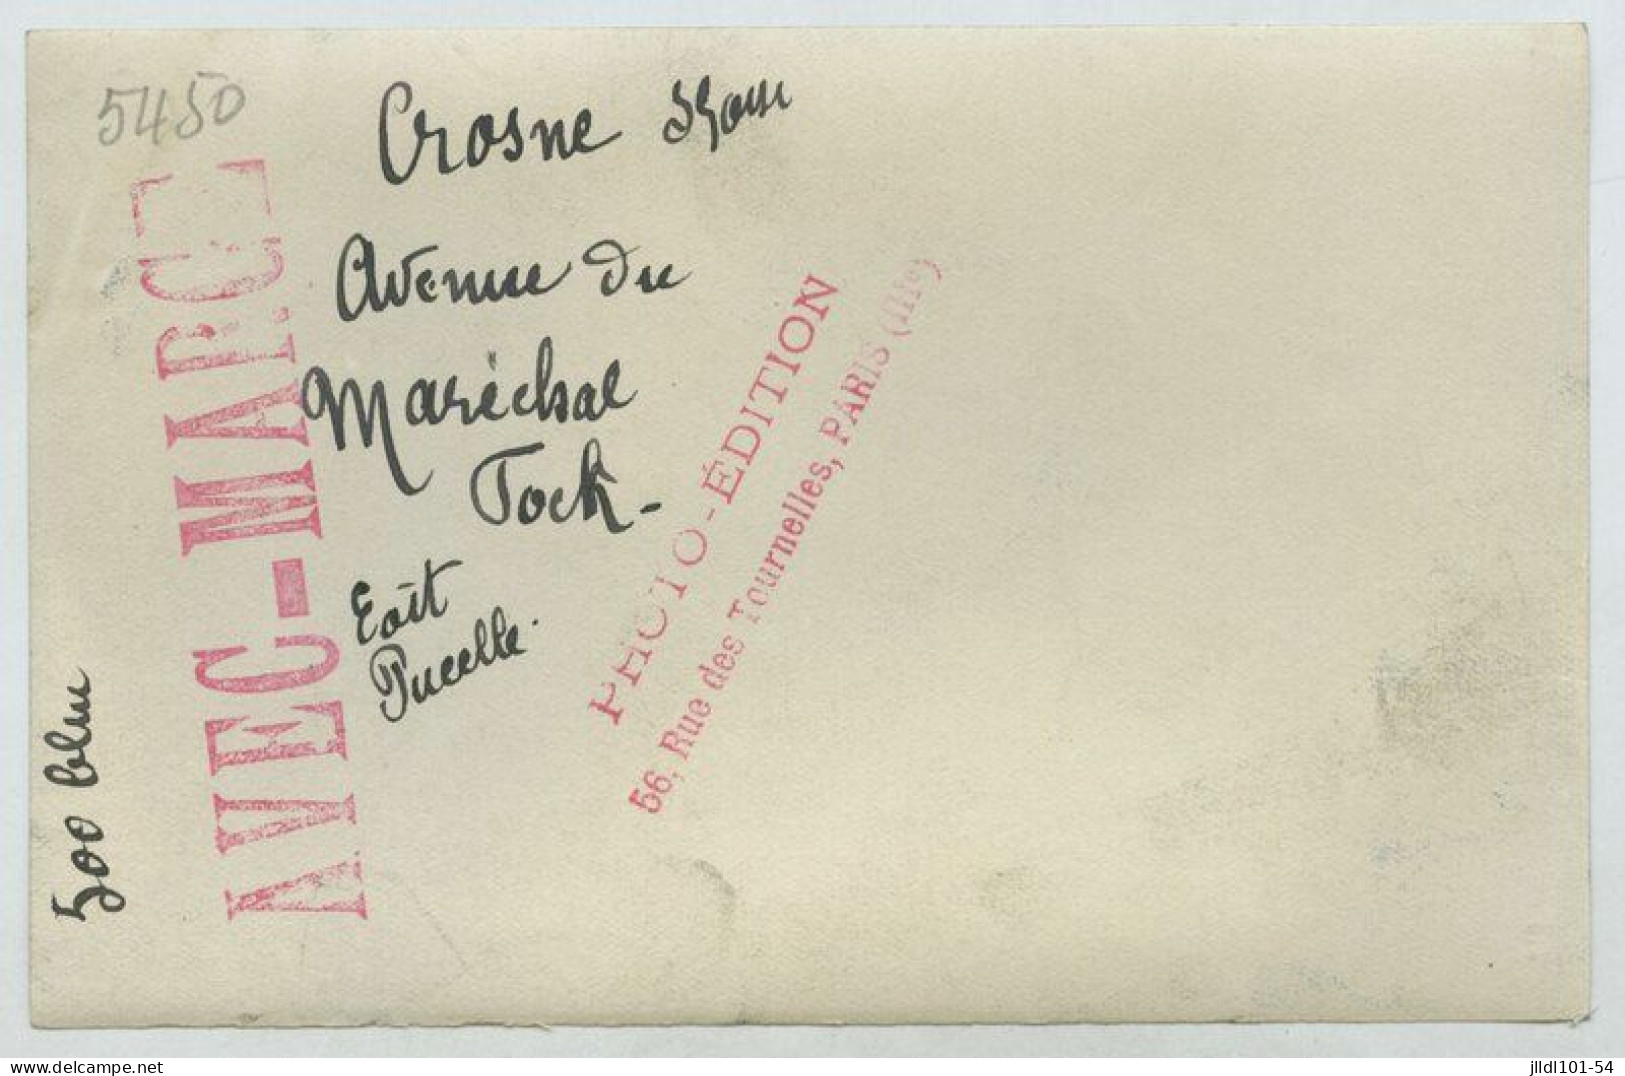 5450
Crosne
Avenue du
Maréchal
Foch -
Edit
Pucelle.
500 bleu
AVEC-MARGE
PHOTO-ÉDITION
56, Rue des Tournelles, PARIS (IIIe)
delcampe.net
jlldl101-54